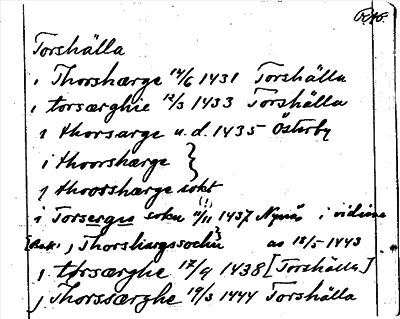 RAÖ.
Torshälla
i Thorshærge 14/6 1431 Torshälla
i torsærghie 12/3 1433 Torshälla
i thorsarge u.d. 1435 Österby
i thoorshærge }
j thoorshærge sokt
i Torserges sokn (!) 11/11 1437 Nynäs i vidisse
j Thorshargssochn } av 18/5 1443
j tfrsærghe 17/9 1438 [Torshälla]
j Thorssærghe 19/3 1444 Torshälla